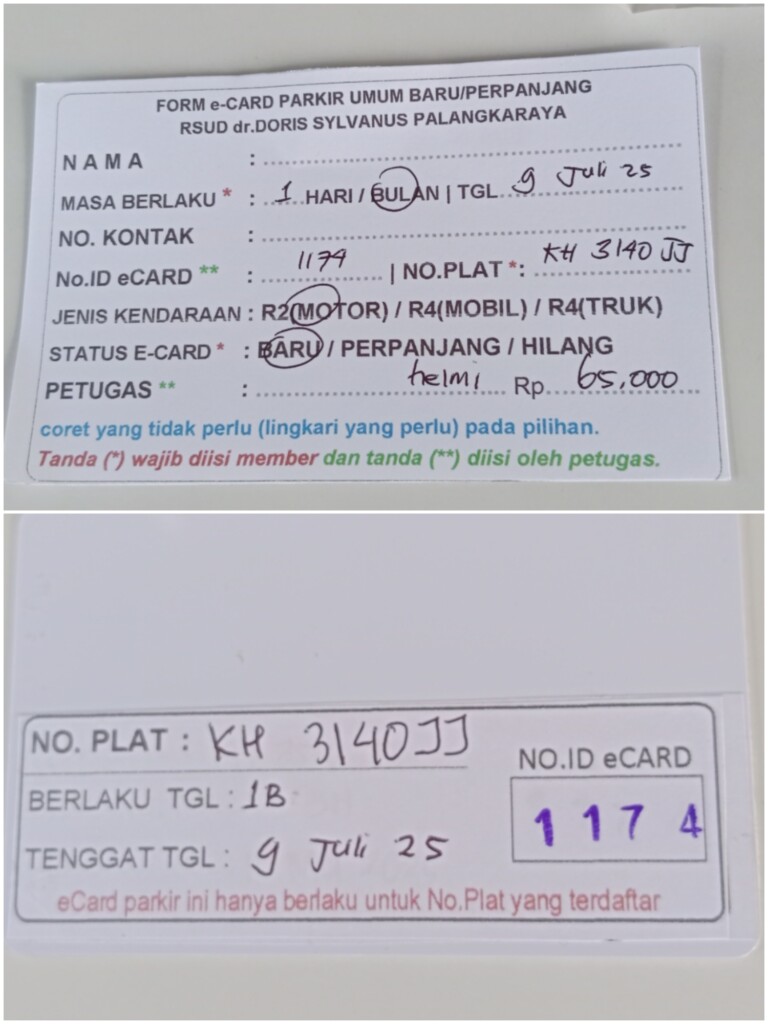 FORM e-CARD PARKIR UMUM BARU/PERPANJANG
RSUD dr.DORIS SYLVANUS PALANGKARAYA
NAMA :
MASA BERLAKU * : 1 HARI / BULAN | TGL 9 Juli 25
NO. KONTAK :
No.ID eCARD ** : 1174 | NO.PLAT *: KH 3140 JJ
JENIS KENDARAAN : R2(MOTOR) / R4(MOBIL) / R4(TRUK)
STATUS E-CARD * : BARU / PERPANJANG / HILANG
PETUGAS ** : helmi Rp. 65.000
coret yang tidak perlu (lingkari yang perlu) pada pilihan.
Tanda (*) wajib diisi member dan tanda (**) diisi oleh petugas.
NO. PLAT : KH 3140JJ
NO.ID eCARD
BERLAKU TGL : 1B
1 1 7 4
TENGGAT TGL : 9 Juli 25
eCard parkir ini hanya berlaku untuk No.Plat yang terdaftar